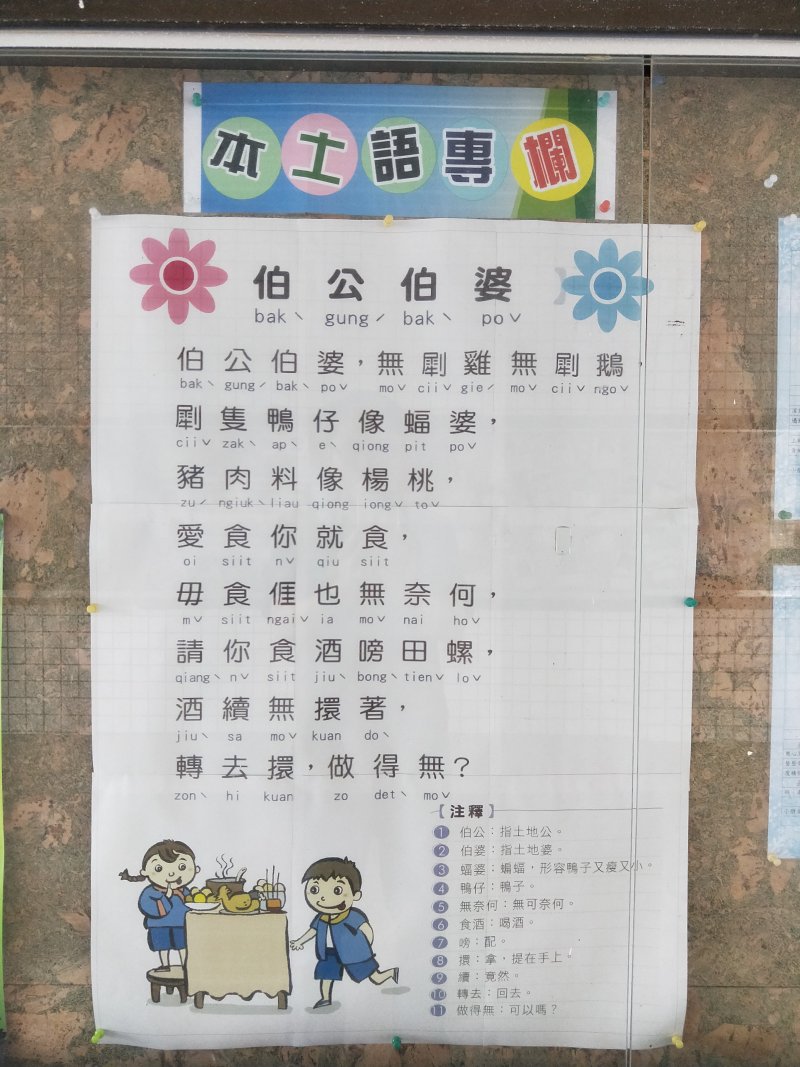 本土語專欄
伯公伯婆
bakˋ gungˊ bakˋ poˇ
伯公伯婆，無㓾雞無㓾鵝，
bakˋ gungˊ bakˋ poˇ moˇ ciiˇ gieˊ moˇ ciiˇ ngoˇ
㓾隻鴨仔像蝠婆，
ciiˇ zakˋ apˋ eˋ qiong pit poˇ
豬肉料像楊桃，
zuˊ ngiukˋ liau qiong iongˇ toˇ
愛食你就食，
oi siit nˇ qiu siit
毋食𠊎也無奈何，
mˇ siit ngaiˇ ia moˇ nai hoˇ
請你食酒嗙田螺，
qiangˋ nˇ siit jiuˋ bongˋ tienˇ loˇ
酒續無擐著，
jiuˋ sa moˇ kuan doˋ
轉去擐，做得無？
zonˋ hi kuan zo detˋ moˇ
【注釋】
1 伯公：指土地公。
2 伯婆：指土地婆。
3 蝠婆：蝙蝠，形容鴨子又瘦又小。
4 鴨仔：鴨子。
5 無奈何：無可奈何。
6 食酒：喝酒。
7 嗙：配。
8 擐：拿，提在手上。
9 續：竟然。
10 轉去：回去。
11 做得無：可以嗎？